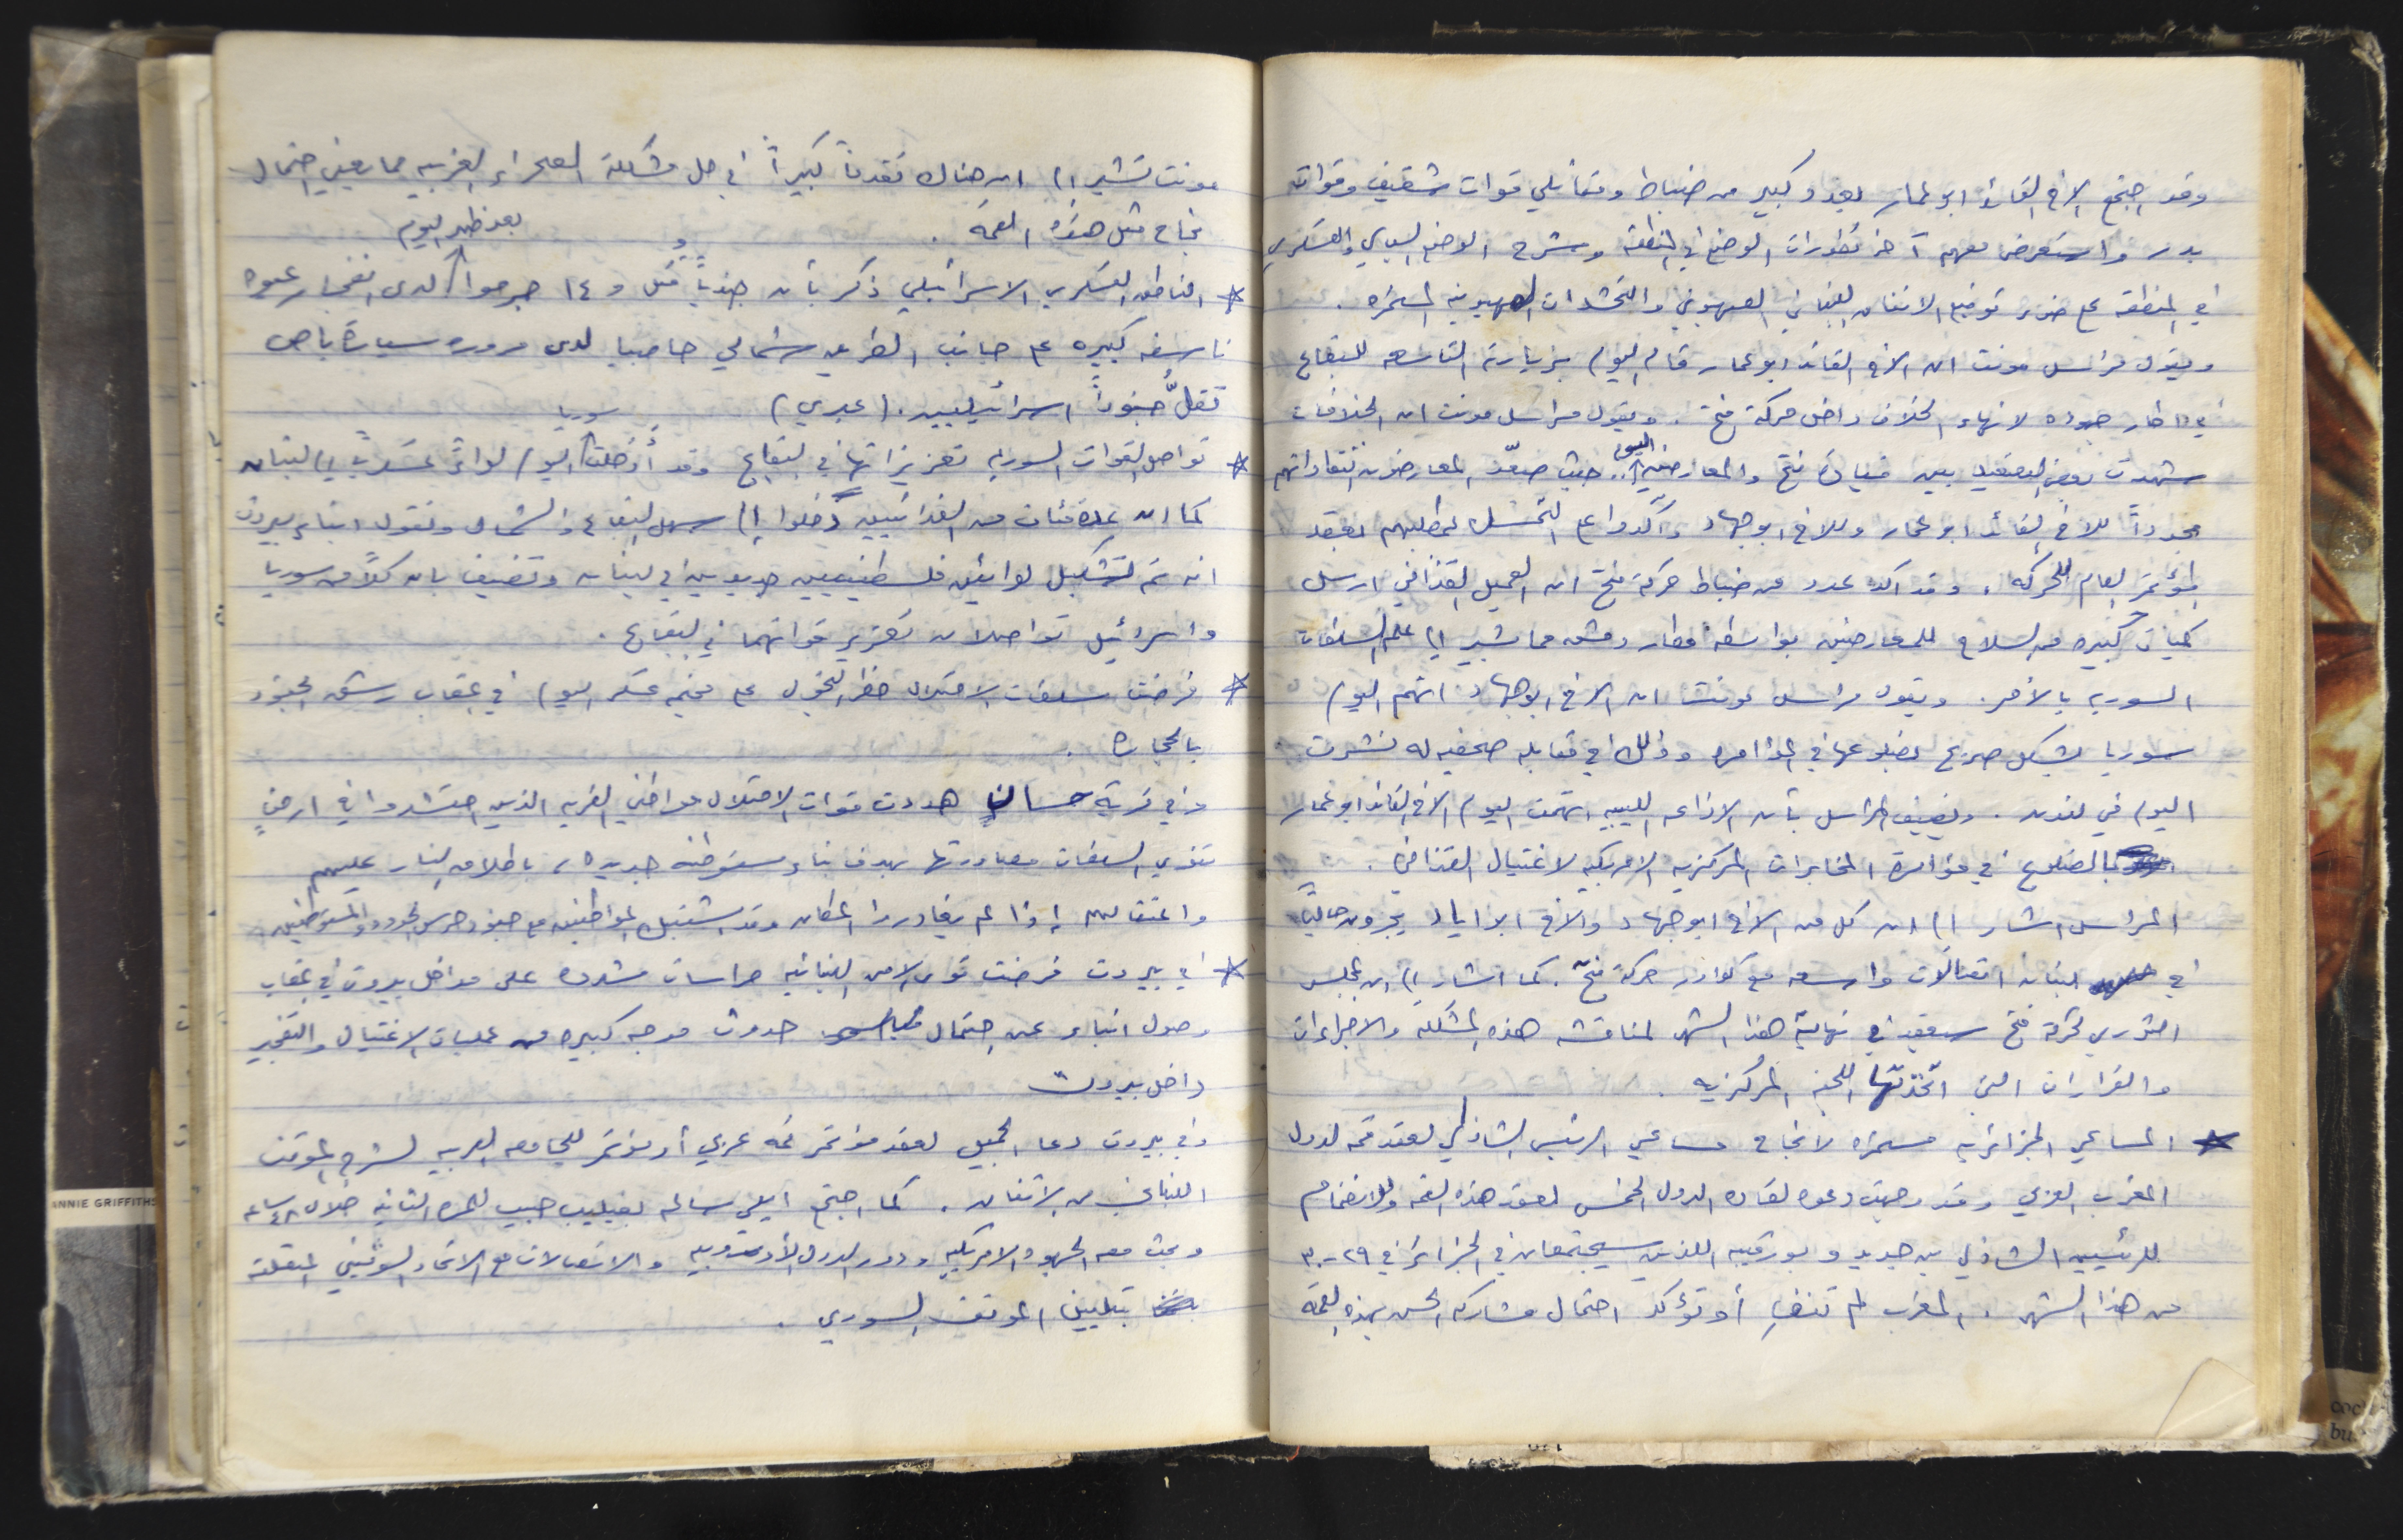 وقد اجتمع الاخ القائد ابو عمار بعدد كبير من ضباط ومقاتلي قوات شقيف وقوات
بدر واستعرض معهم آخر تطورات الوضع في المنطقة وشرح الوضع السياسي والعسكري
في المنطقة على ضوء توقيع الاتفاق اللبناني الصهيوني والتحشدات الصهيونية المستمرة .
ويقول مراسل مونت ان الاخ القائد ابو عمار قام اليوم بزيارته التاسعه للبقاع
في اطار جهوده لانهاء الخلاف داخل حركة فتح . ويقول مراسل مونت ان الخلافات
شهدت بعض التصعيد بين قيادة فتح والمعارضين اليوم .. حيث صعّد المعارضون انتقاداتهم
مجدداً للاخ القائد ابو عمار وللاخ ابو جهاد وأكدوا على التمسك بمطلبهم بعقد
المؤتمر العام للحركه ، وقد اكد عدد من ضباط حركة فتح ان العميل القذافي ارسل
كميات كبيره من السلاح للمعارضين بواسطة مطار دمشق مما يشير الى علم السلطات
السوريه بالأمر . ويقول مراسل مونت ان الاخ ابو جهاد اتهم اليوم
سوريا بشكل صريح بضلوعها في المؤامره وذلك في مقابله صحفيه له نشرت
اليوم في لندن . ويضيف المراسل بأن الاذاعه الليبيه اتهمت اليوم الاخ القائد ابو عمار
بالضلوع في مؤامرة المخابرات المركزيه الامريكيه لاغتيال القذافي .
المراسل اشار الى ان كل من الاخ ابو جهاد والاخ ابو اياد يجرون حالياً
في لبنان اتصالات واسعه مع كوادر حركة فتح . كما اشار الى ان المجلس
الثوري لحركة فتح سيعقد في نهاية هذا الشهر لمناقشة هذه المشكلة والاجراءات
والقرارات التي اتخذتها اللجنه المركزيه .
* المساعي الجزائريه مستمره لانجاح مساعي الرئيس الشاذلي لعقد قمه لدول
المغرب العربي وقد وجهت دعوه لقاده الدول الخمس لعقد هذه القمه وللانضمام
للرئيسين الشاذلي بن جديد وبورقيبه اللذين سيجتمعان في الجزائر في ٢٩-٣٠
من هذا الشهر . المغرب لم تنفِ أو تؤكد احتمال مشاركه الحسن بهذه القمة
مونت تشير الى ان هناك تقدماً كبيراً في حل مشكلة الصحراء الغربيه مما يعني احتمال
نجاح مثل هذه القمه .
بعد ظهر اليوم
* الناطق العسكري الاسرائيلي ذكر بأن جندياً قتل و ١٤ جرحوا لدى انفجار عبوه
ناسفه كبيره على جانب الطريق شمالي حاصبيا لدى مروره سيارة باص
تقلُّ جنوداً اسرائيليين . (عبري)
سوريا
* تواصل القوات السوريه تعزيزاتها في البقاع وقد أدخلت اليوم لواءً عسكرياً الى لبنان
كما ان عدة مئات من الفدائيين دخلوا الى سهل البقاع والشمال وتقول انباء بيروت
انه تم تشكيل لوائين فلسطينيين جديدين في لبنان وتضيف بان كلاً من سوريا
واسرائيل تواصلان تعزيز قواتهما في البقاع .
* فرضت سلطات الاحتلال حظر التجول على مخيم عسكر اليوم في اعقاب رشق الجنود
بالحجاره .
وفي قرية حسان هددت قوات الاحتلال مواطني القريه الذين احتشدوا في ارضٍ
تنوي السلطات مصادرتها بهدف بناء مستوطنه جديده ، باطلاق النار عليهم
واعتقالهم إذا لم يغادروا المكان وقد اشتبك المواطنين مع جنود حرس الحدود والمستوطنين
* في بيروت فرضت قوى الامن اللبنانيه حراسات مشدده على مداخل بيروت في اعقاب
وصول انباء عن احتمال حدوث موجه كبيره من عمليات الاغتيال والتفجير
داخل بيروت
وفي بيروت دعا الجميل لعقد مؤتمر قمه عربي أو مؤتمر للجامعه العربيه لشرح الموقف
اللبناني من الاتفاق . كما اجتمع ايلي سالم بفيليب حبيب للمره الثانيه خلال ٤٨ ساعه
وبحث معه الجهود الامريكيه ودور الدول الأوروبيه والاتصالات مع الاتحاد السوفيتي المتعلقه
بتليين الموقف السوري .
ANNIE GRIFFITHS